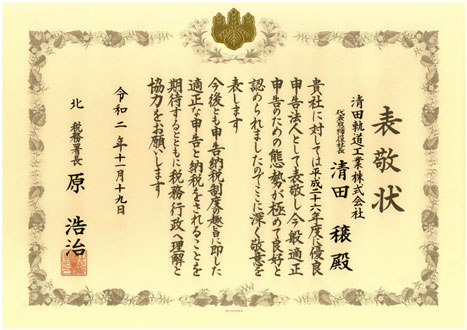 表敬状
清田軌道工業株式会社
代表取締役社長 清田 穣 殿
貴社に対しては平成二十六年度に優良
申告法人として表敬し今般適正
申告のための態勢が極めて良好と
認められましたのでここに深く敬意を
表します
今後とも申告納税制度の趣旨に即した
適正な申告と納税をされることを
期待するとともに税務行政へ理解と
協力をお願いします
令和二年十一月十九日
北 税務署長 原 浩治